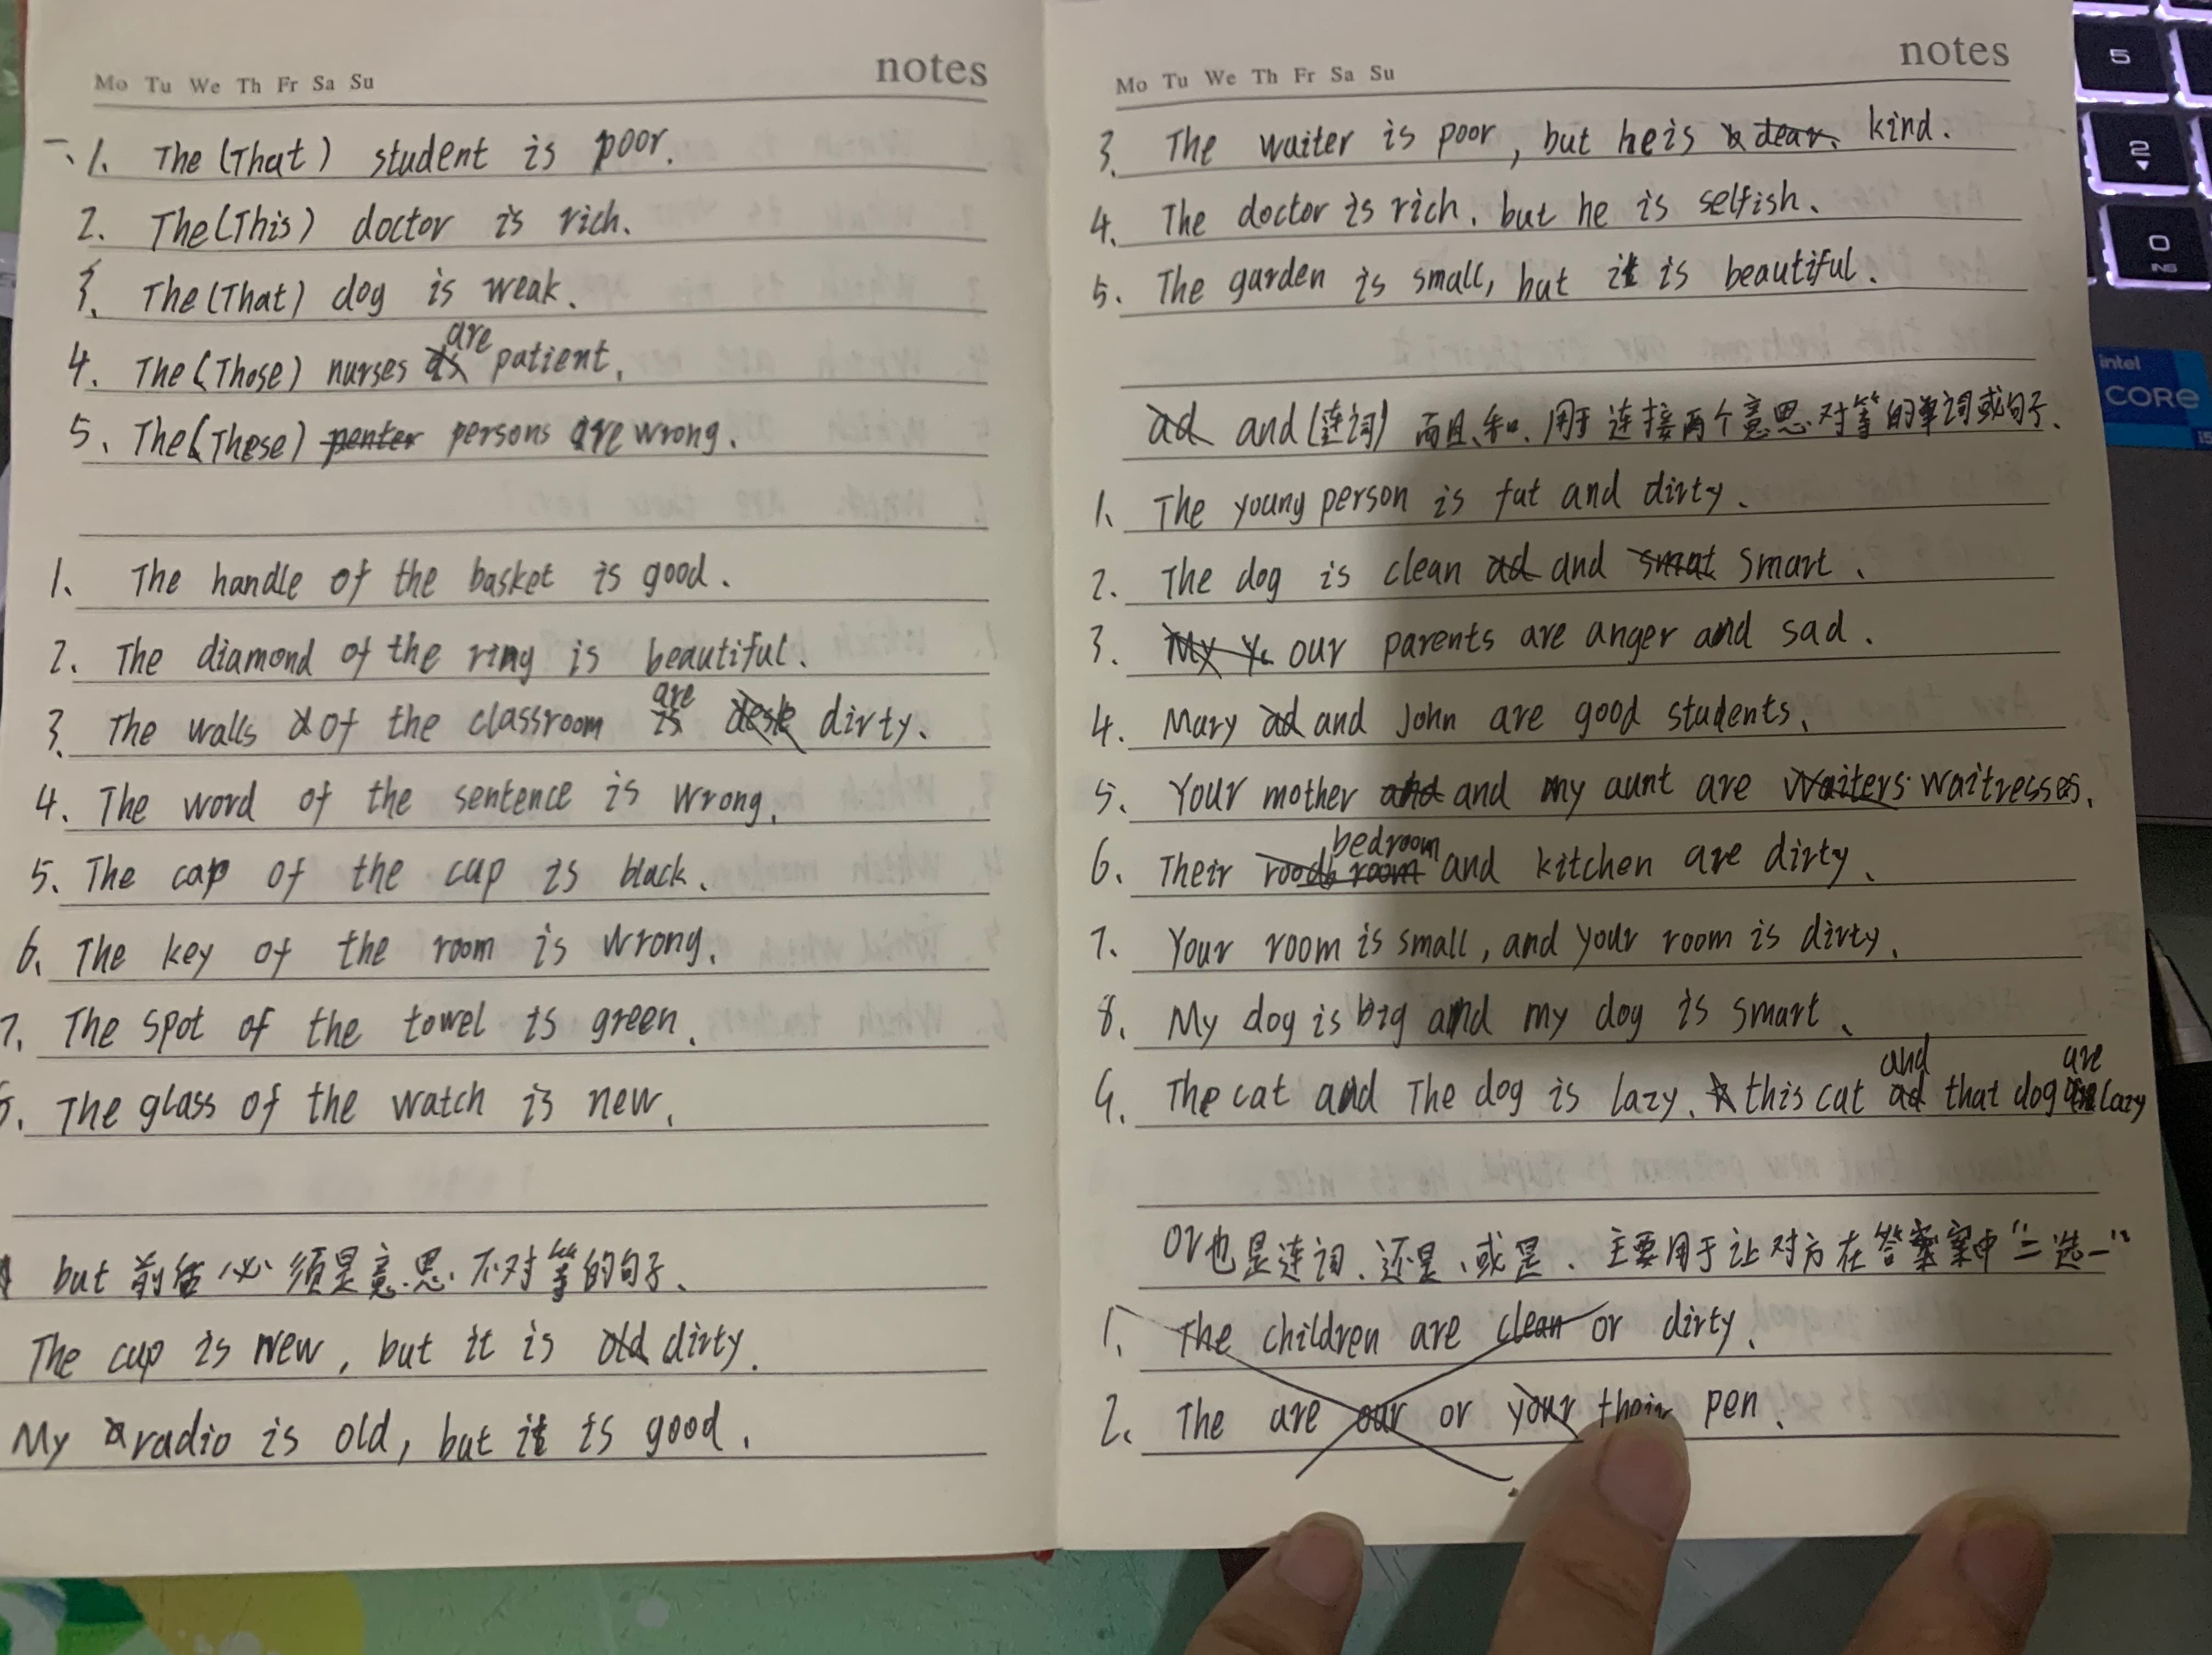 notes
Mo Tu We Th Fr Sa Su
一、1. The (That) student is poor.
2. The (This) doctor is rich.
3. The (That) dog is weak.
are
4. The (Those) nurses is patient.
5. The (These) penter persons are wrong.
1. The handle of the basket is good.
2. The diamond of the ring is beautiful.
are
3. The walls of the classroom is desk dirty.
4. The word of the sentence is wrong.
5. The cap of the cup is black.
6. The key of the room is wrong.
7. The spot of the towel is green.
8. The glass of the watch is new.
but 前后必须是意思不对等的句子.
The cup is new, but it is old dirty.
My radio is old, but it is good.
notes
Mo Tu We Th Fr Sa Su
3. The waiter is poor, but he is dear. kind.
4. The doctor is rich, but he is selfish.
5. The garden is small, but it is beautiful.
ad and (连词) 而且、和. 用于连接两个意思对等的单词或句子.
1. The young person is fat and dirty.
2. The dog is clean ad and smat smart.
3. My Yo our parents are anger and sad.
4. Mary ad and John are good students.
5. Your mother and and my aunt are waiters waitresses.
bedroom
6. Their room and kitchen are dirty.
7. Your room is small, and your room is dirty.
8. My dog is big and my dog is smart.
and are
9. The cat and The dog is lazy. this cat ad that dog lazy
or也是连词、还是、或是、主要用于让对方在答案中"二选一"
1. The children are clean or dirty.
2. The are our or your their pen.
5
2
0
INS
intel
CORE
i5